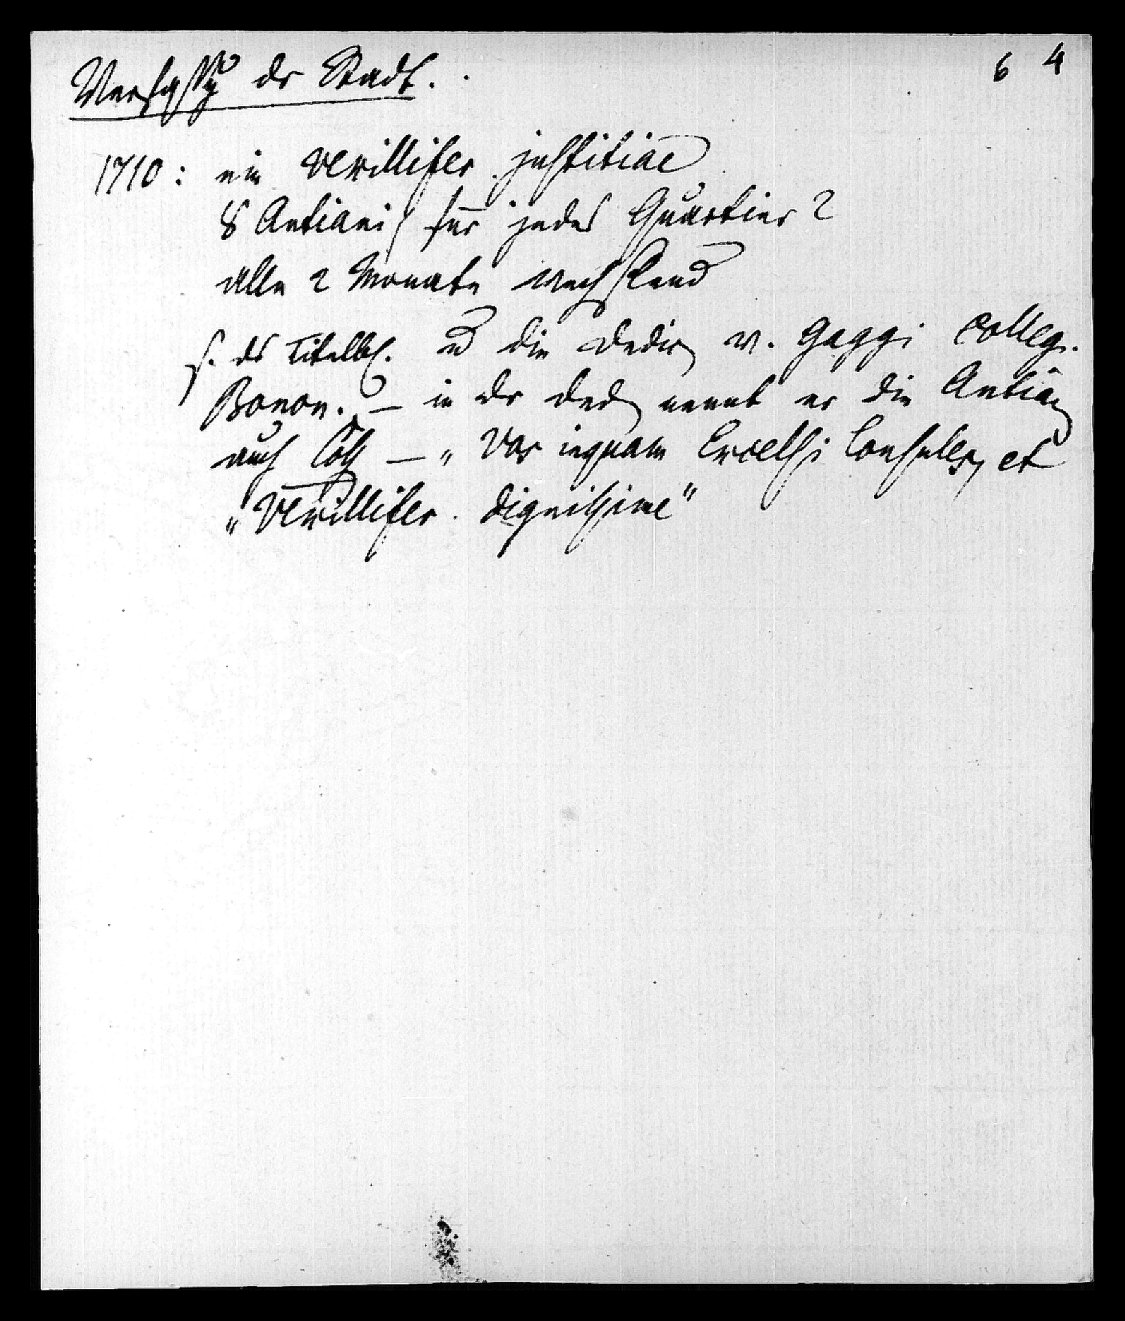 6 4
Verfassg dr Stadt.
1710: ein vexillifer justitiae
8 Antiani / für jedes Quartier 2
alle 2 Monate wechselnd
s. ds Titelbl. u die Dedic v. Gaggi Colleg.
Bonon. – in dr Ded nennt er die Antian
auch Coss – „Vos inquam Excelsi Consules, et
„Vexillifer dignissime"